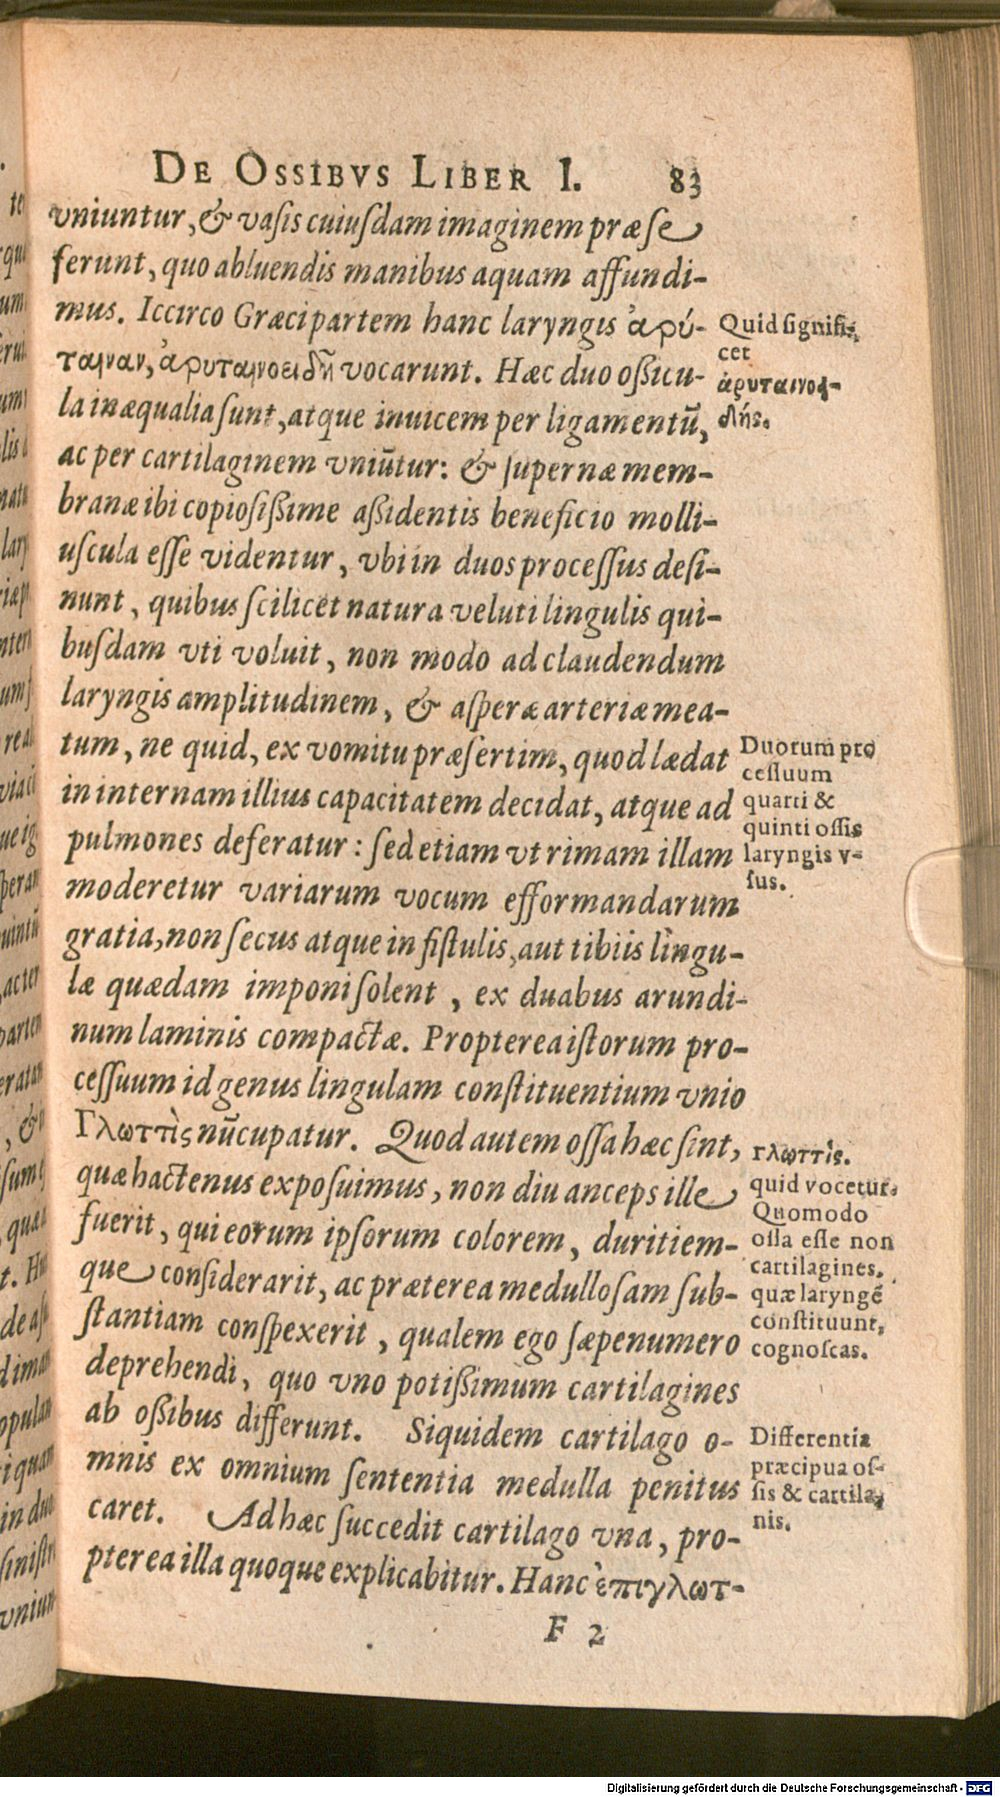 DE OSSIBVS LIBER I. 83
vniuntur, & vasis cuiusdam imaginem præ se
ferunt, quo abluendis manibus aquam affundi-
mus. Iccirco Græci partem hanc laryngis ἀρύ-
ταιναν, ἀρυταινοειδῆ vocarunt. Hæc duo oßicu-
la inæqualia sunt, atque inuicem per ligamentū,
ac per cartilaginem vniūtur: & supernæ mem-
branæ ibi copiosißime aßidentis beneficio molli-
uscula esse videntur, vbi in duos processus desi-
nunt, quibus scilicet natura veluti lingulis qui-
busdam vti voluit, non modo ad claudendum
laryngis amplitudinem, & asperæ arteriæ mea-
tum, ne quid, ex vomitu præsertim, quod lædat
in internam illius capacitatem decidat, atque ad
pulmones deferatur: sed etiam vt rimam illam
moderetur variarum vocum efformandarum
gratia, non secus atque in fistulis, aut tibiis lingu-
læ quædam imponi solent, ex duabus arundi-
num laminis compactæ. Propterea istorum pro-
cessuum id genus lingulam constituentium vnio
Γλωττὶς nūcupatur. Quod autem ossa hæc sint,
quæ hactenus exposuimus, non diu anceps ille
fuerit, qui eorum ipsorum colorem, duritiem-
que considerarit, ac præterea medullosam sub-
stantiam conspexerit, qualem ego sæpenumero
deprehendi, quo vno potißimum cartilagines
ab oßibus differunt. Siquidem cartilago o-
mnis ex omnium sententia medulla penitus
caret. Ad hæc succedit cartilago vna, pro-
pterea illa quoque explicabitur. Hanc ἐπιγλωτ-
F 2
Quid signifi-
cet
ἀρυταινοει-
δής.
Duorum pro
cessuum
quarti &
quinti ossis
laryngis v-
sus.
Γλωττὶς.
quid vocetur.
Quomodo
ossa esse non
cartilagines,
quæ laryngē
constituunt,
cognoscas.
Differentia
præcipua os-
sis & cartila-
nis.
Digitalisierung gefördert durch die Deutsche Forschungsgemeinschaft - DFG